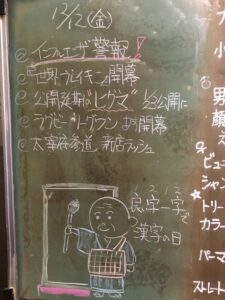 12/12(金)
インフルエンザ警報!
"世界プレイキン"開幕
公開延期"レグマ"
ラグビーリーグワン 開幕
太宰府参道 新店ラッシュ
良い字一字で
漢字の日
男
顔
シャン
トリー
カラー
パーマ
ストレート